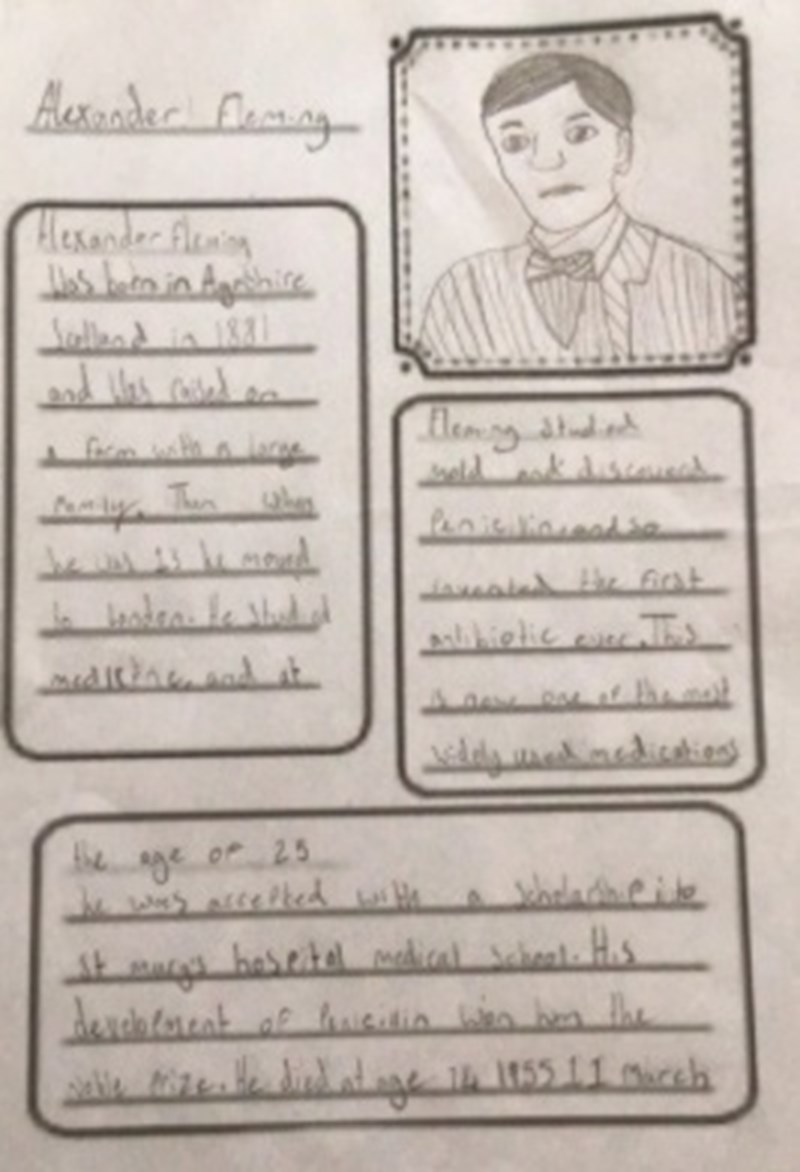 Alexander Fleming
Alexander Fleming
Was born in Ayrshire
Scotland in 1881
and Was raised on
a farm with a large
family. Then when
he was 13 he moved
to London. He studied
medicine, and at
Fleming studied
mold and discovered
Penicillin, and so
invented the first
antibiotic ever. This
is now one of the most
widely used medications
the age of 25
he was accepted with a scholarship into
St mary's hospital medical school. His
development of Penicillin won him the
noble Prize. He died at age 74 1955 11 March